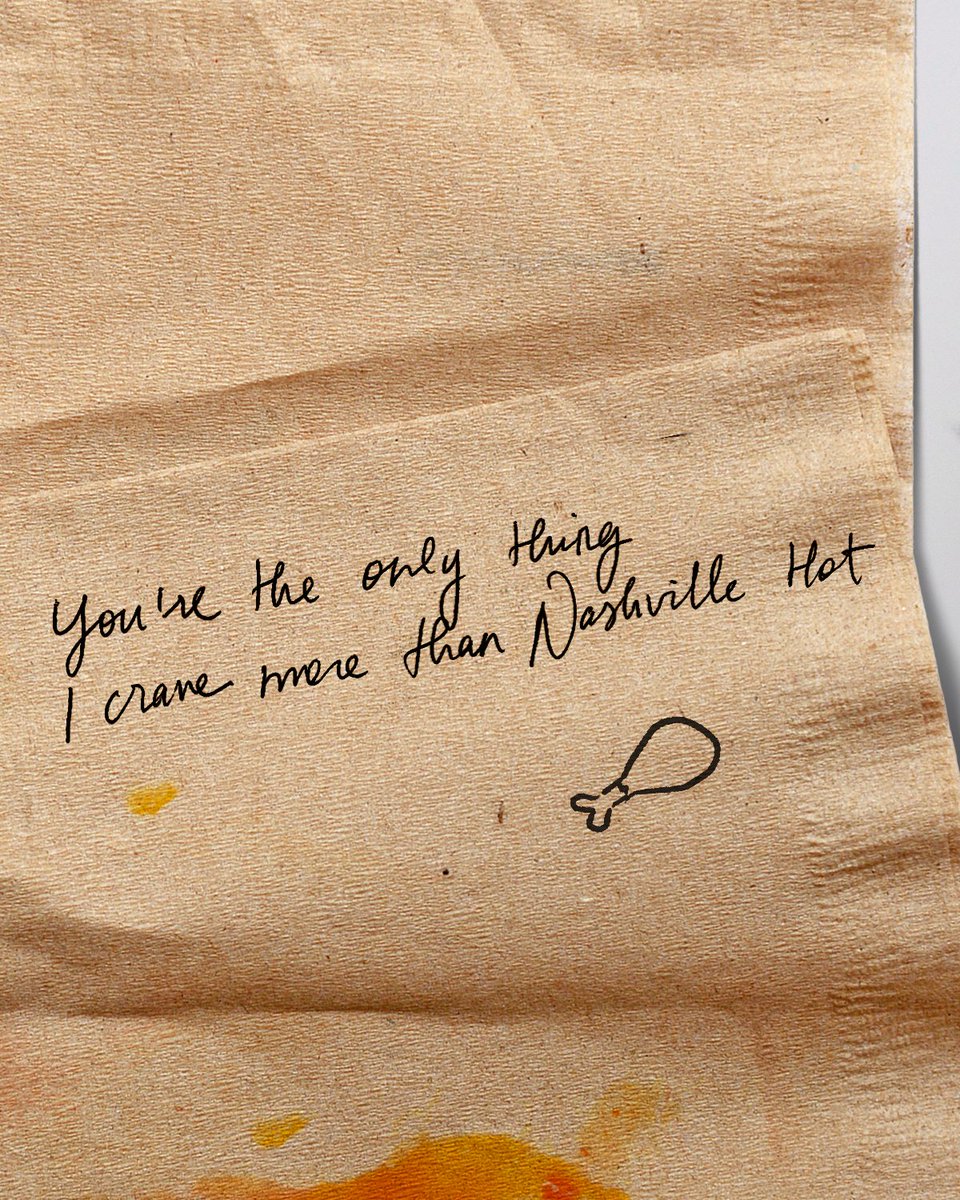 You're the only thing
I crave more than Nashville Hot